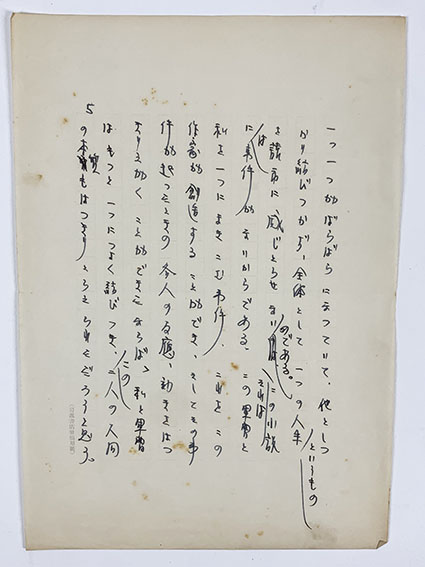 一つ一つがばらばらになつていて、他としつ
かり結びつかず、全体として一つの人生というもの
を読者に感じとらせないのである。それはこの小説
には事件がないからである。この軍曹と
私を一つにまきこむ事件、これをこの
作家が創造することができ、そしてその事
件が起つたときの各人の反應、動きをはつ
きりえがくことができたならば、私と軍曹
はもつと一つにつよく結びつき、この二人の人間
の本質もはつきりとらえられただろうと思う。
5